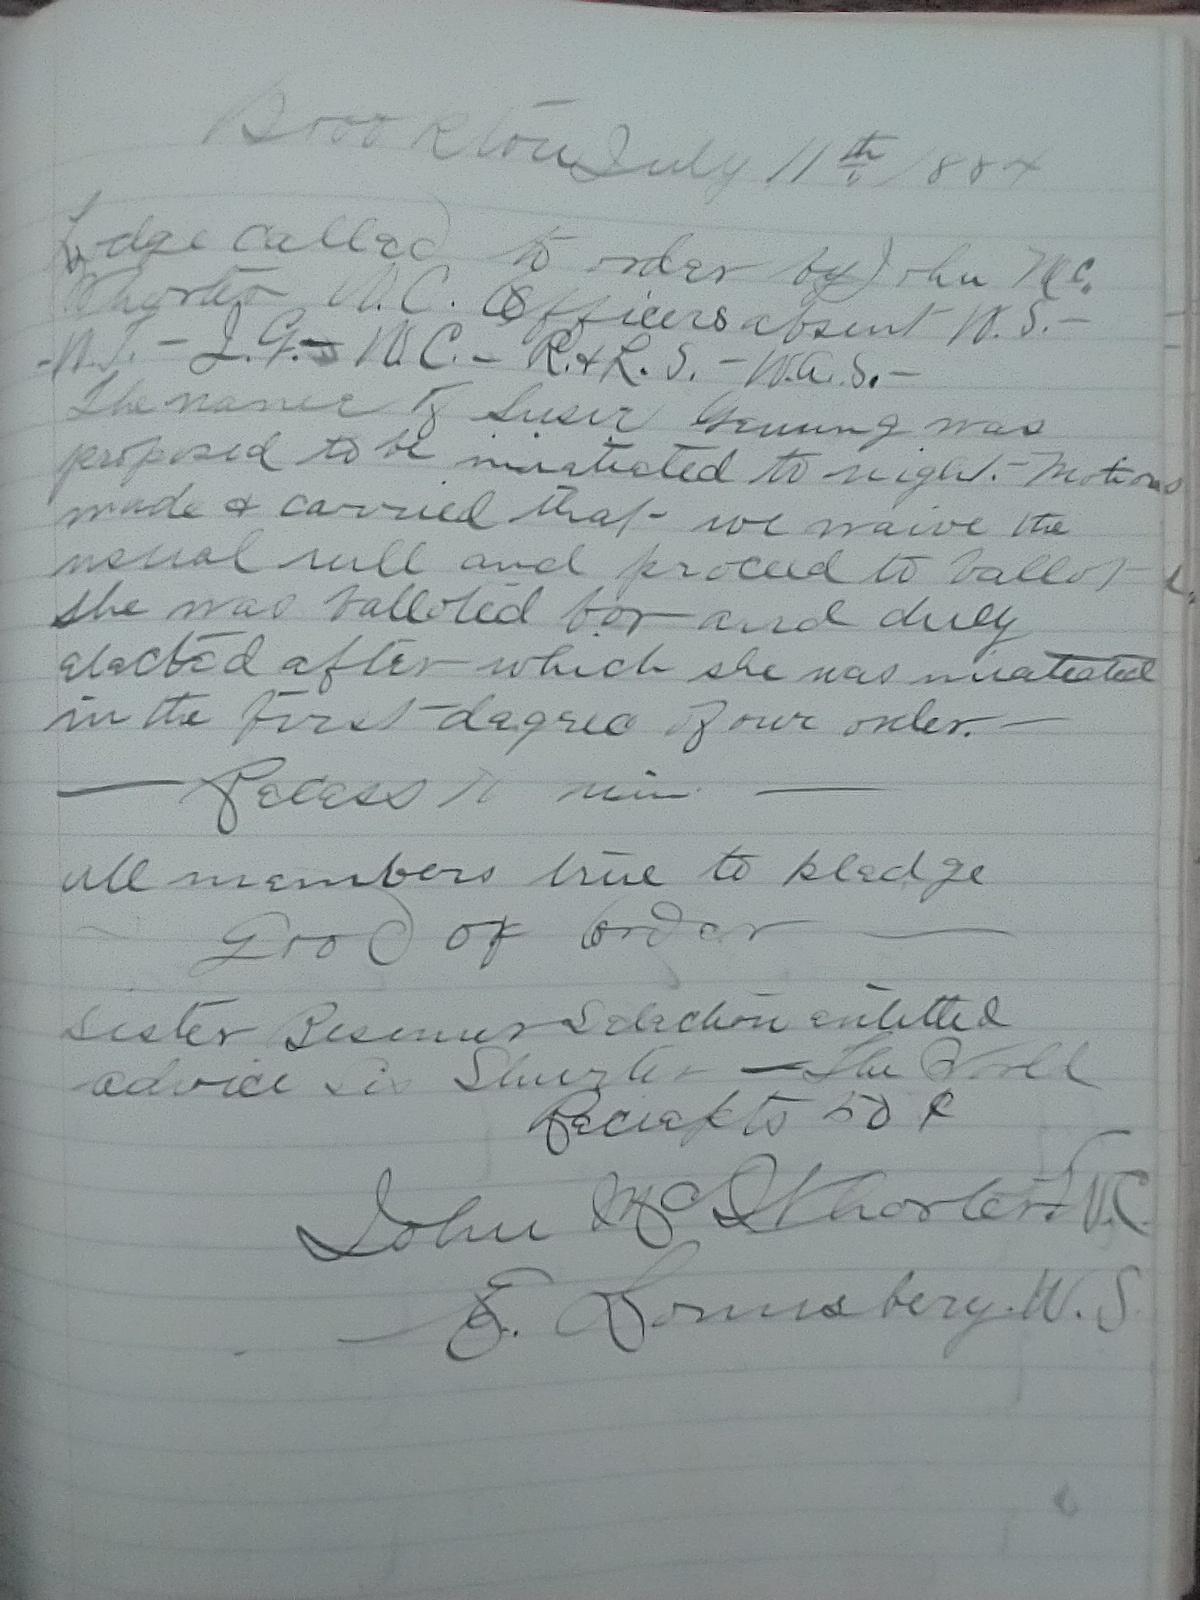 Brookton July 11th 1884
Lodge called to order by John Mc.
Whorter W.C. Officers absent W.S.-
-W.T. - I.G.- W.C. - R.&L.S. - W.A.S. -
The name of Susie Genung was
proposed to be inatiated to night. - Motion
made & carried that we waive the
usual rull and proceed to ballot
she was balloted for and duly
elected after which she was inatiated
in the first degree of our order. -
Recess min
all members true to pledge
Good of order
Sister Besemer Selection entitled
advice - The World
Reciepts 50 ¢
John McWhorter W.C.
E. Lounsbery. W. S.